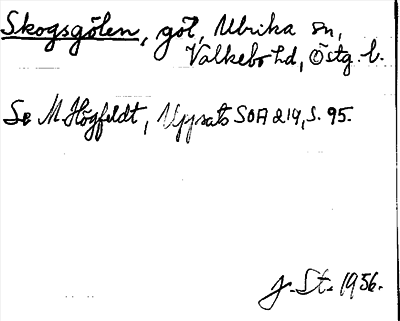 Skogsgölen, göl, Ulrika sn,
Valkebo hd, Östg. l.
Se M Högfeldt, Uppsats SOA 219, S. 95.
J. St. 1936.